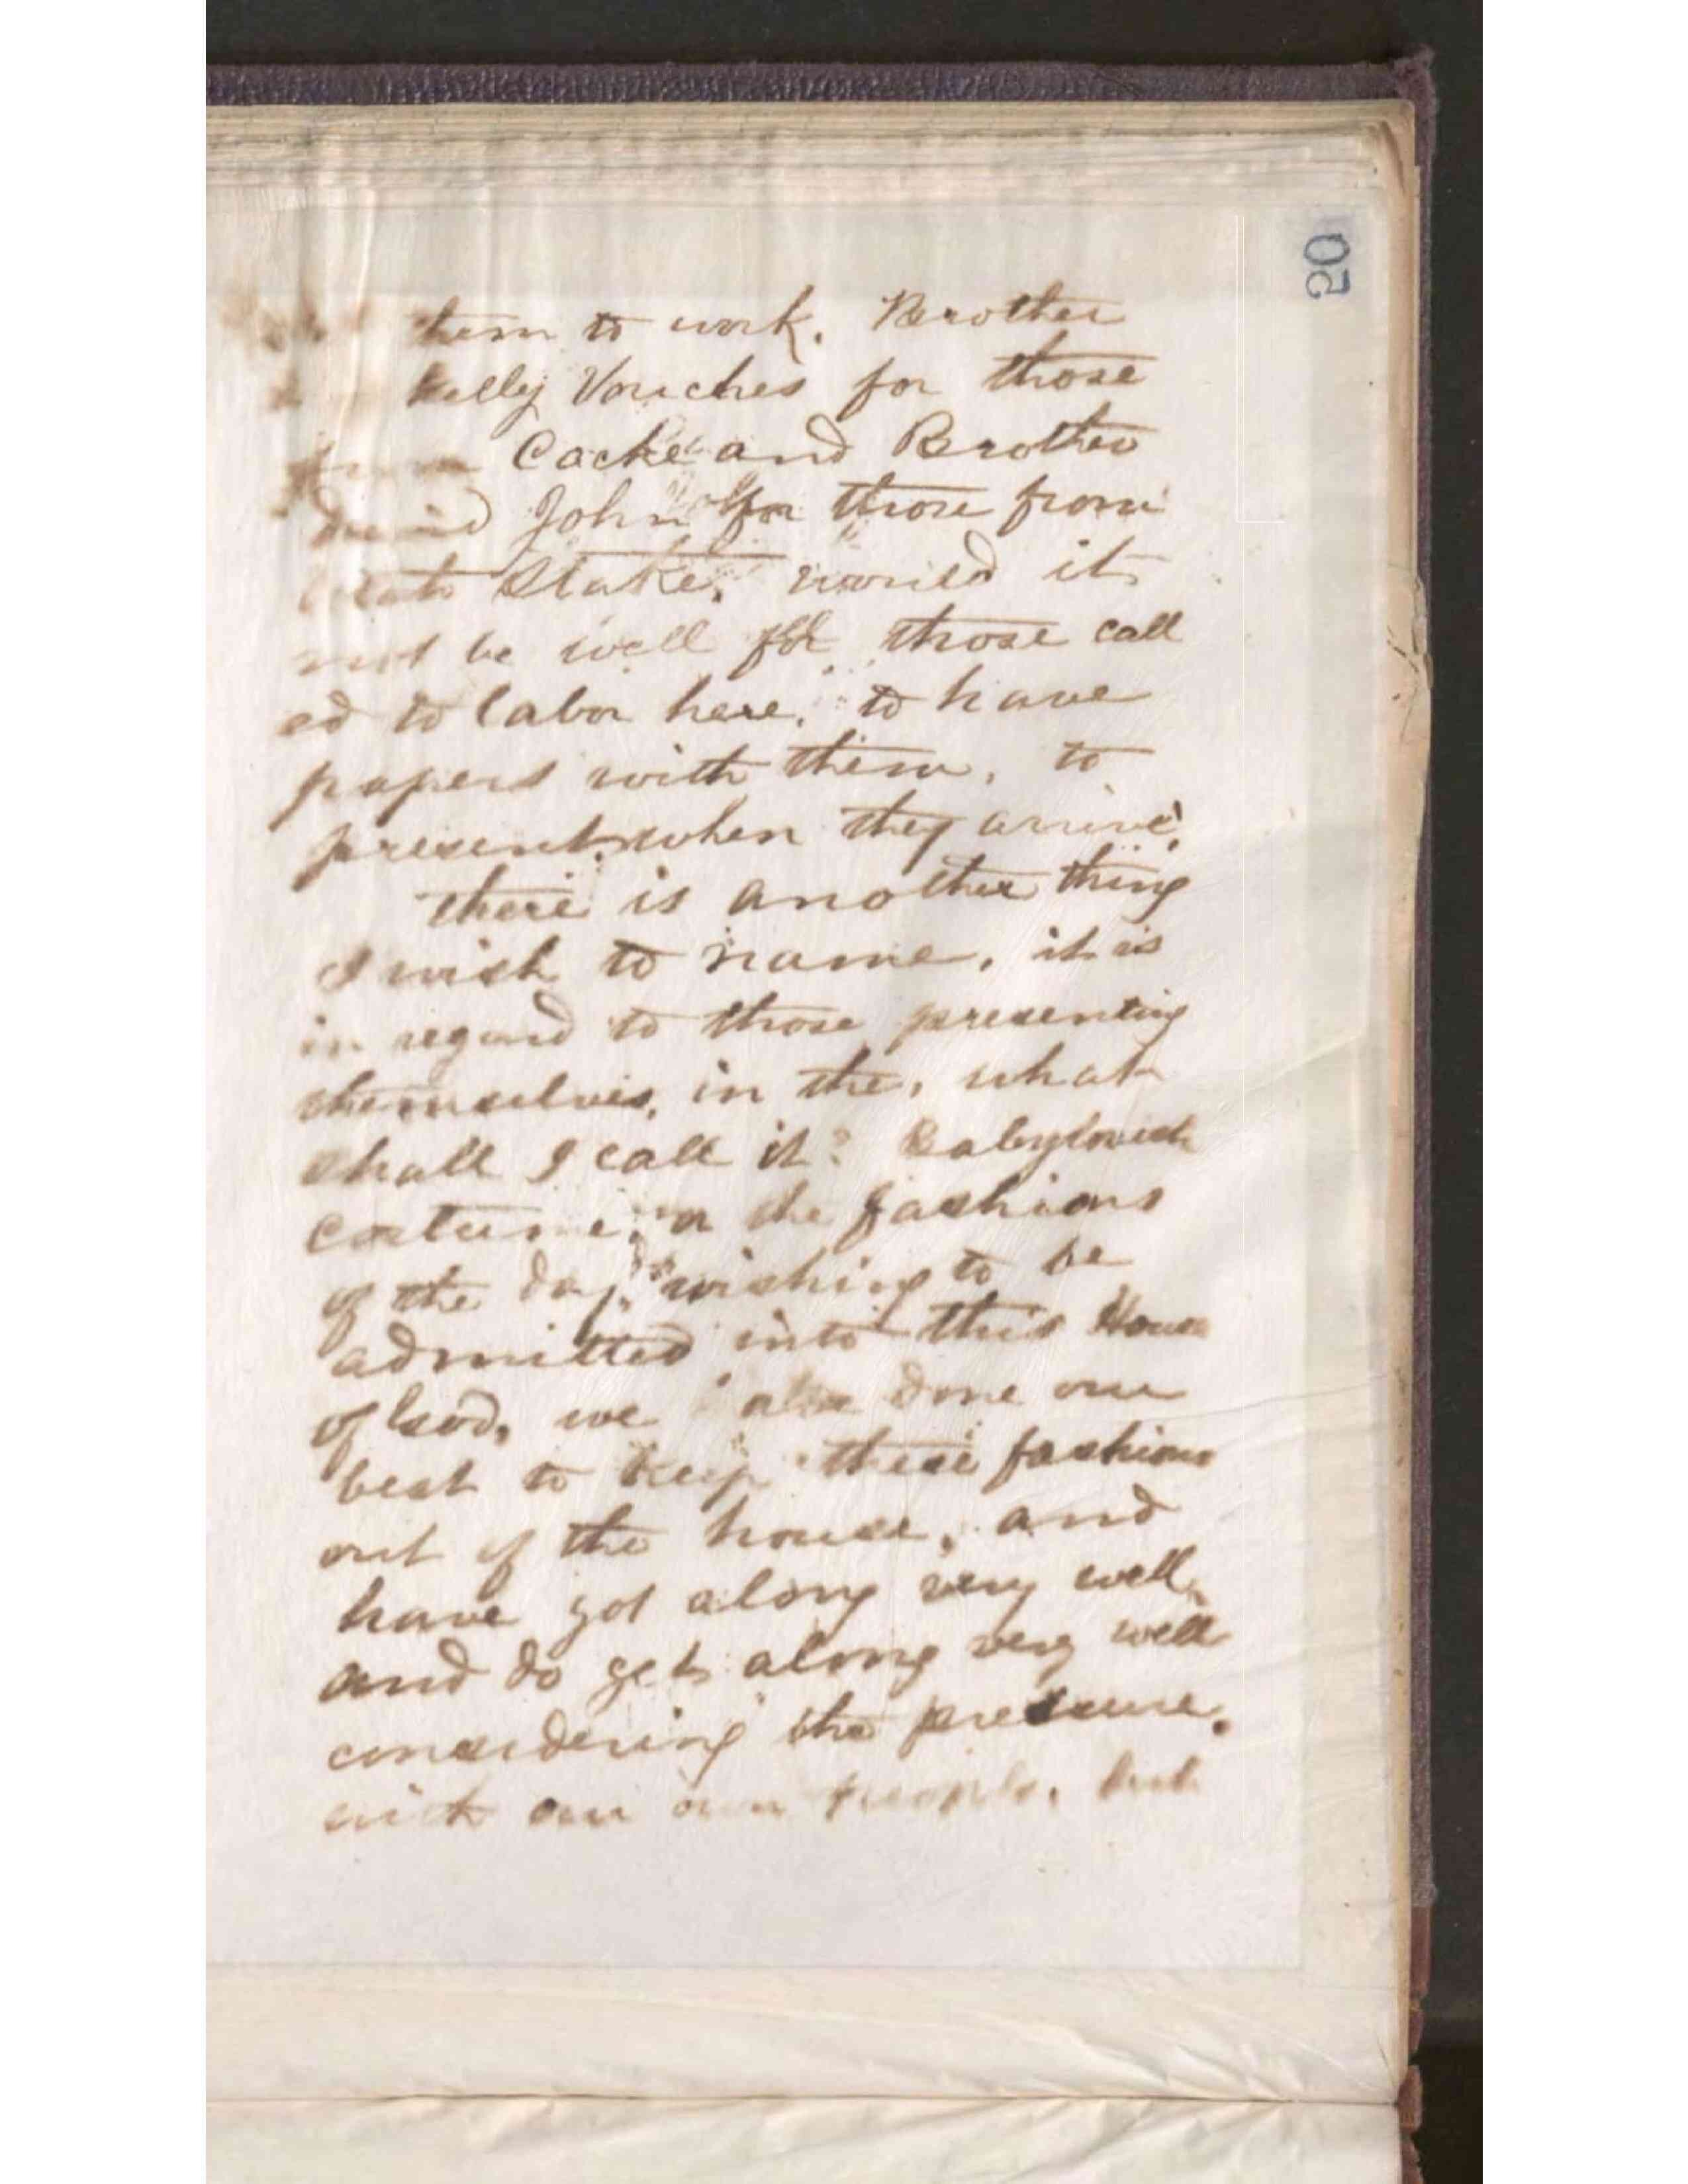 20
them to work. Brother
Kelly Vouches for those
from Cache and Brother
David John for those from
Utah Stake, would it
not be well for those call
ed to labor here, to have
papers with them, to
present when they arrive,
there is another thing
I wish to name, it is
in regard to those presenting
themselves, in the, what
shall I call it? Babylonish
costume, or the fashions
of the day, wishing to be
admitted into this House
of God, we done our
best to keep these fashions
out of the house, and
have got along very well,
and do get along very well
considering the pressure,
with our own people, but